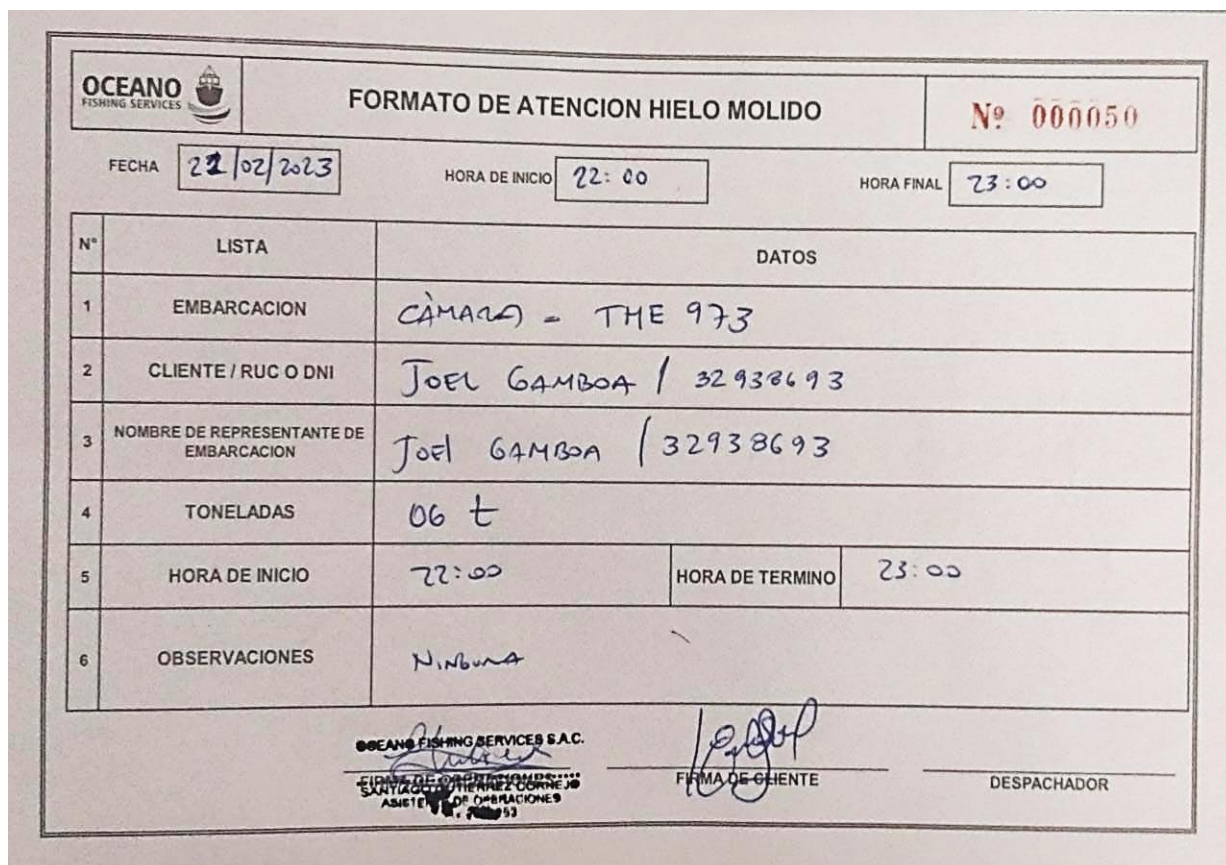 OCEANO
FISHING SERVICES
FORMATO DE ATENCION HIELO MOLIDO
Nº 000050
FECHA 21/02/2023 HORA DE INICIO 22:00 HORA FINAL 23:00
N° LISTA DATOS
1 EMBARCACION CÀMARA - THE 973
2 CLIENTE / RUC O DNI JOEL GAMBOA / 32938693
3 NOMBRE DE REPRESENTANTE DE EMBARCACION JOEl GAMBOA / 32938693
4 TONELADAS 06 t
5 HORA DE INICIO 22:00 HORA DE TERMINO 23:00
6 OBSERVACIONES NINGUNA
OCEANO FISHING SERVICES S.A.C.
FIRMA DE OPERACIONES
SANTIAGO GUTIERREZ CORNEJO
ASISTENTE DE OPERACIONES
FIRMA DE CLIENTE
DESPACHADOR